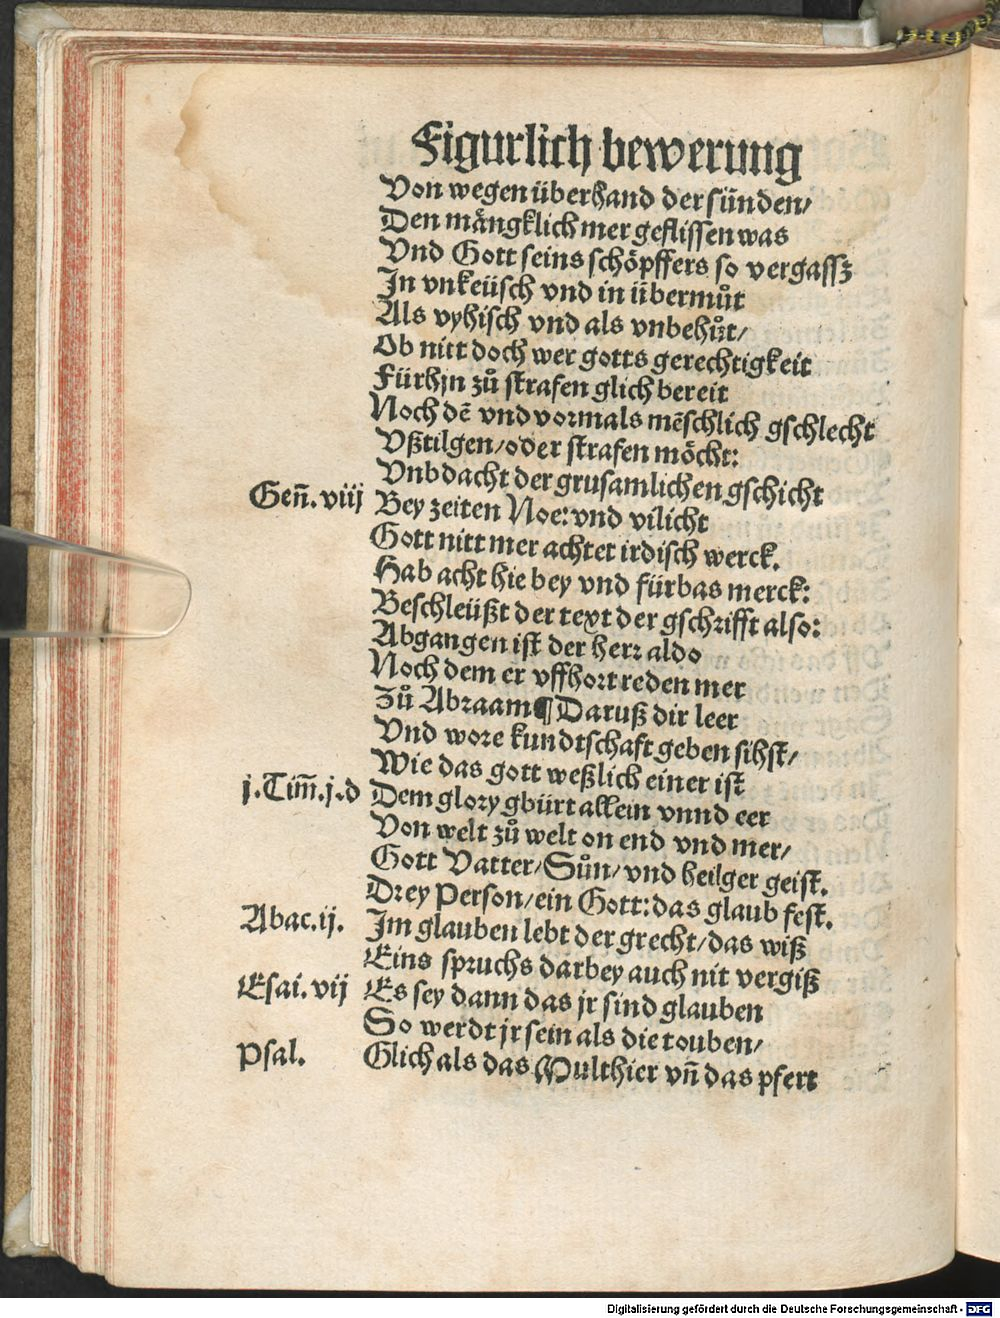 Figurlich bewerung
Von wegen überhand der sünden/
Den mångklich mer geflissen was
Vnd Gott seins schöpffers so vergassz
In vnkeüsch vnd in übermůt
Als vyhisch vnd als vnbehůt/
Ob nitt doch wer gotts gerechtigkeit
Fürhjn zů strafen glich bereit
Noch dẽ vnd vormals mẽschlich gschlecht
Vßtilgen/oder strafen möcht:
Vnbdacht der grusamlichen gschicht
Geñ. viij Bey zeiten Noe: vnd vilicht
Gott nitt mer achtet irdisch werck.
Hab acht hie bey vnd fürbas merck:
Beschleüßt der text der gschrifft also:
Abgangen ist der herr aldo
Noch dem er vffhort reden mer
Zů Abraam¶Daruß dir leer
Vnd wore kundtschaft geben sihst/
Wie das gott weßlich einer ist
j.Tim̃.j.d Dem glory gbürt allein vnnd eer
Von welt zů welt on end vnd mer/
Gott Vatter/Sůn/vnd heilger geist.
Drey Person/ein Gott: das glaub fest.
Abac.ij. Im glauben lebt der grecht/das wiß
Eins spruchs darbey auch nit vergiß
Esai. vij Es sey dann das jr sind glauben
So werdt jr sein als die touben/
Psal. Glich als das Multhier vñ das pfert
Digitalisierung gefördert durch die Deutsche Forschungsgemeinschaft - DFG